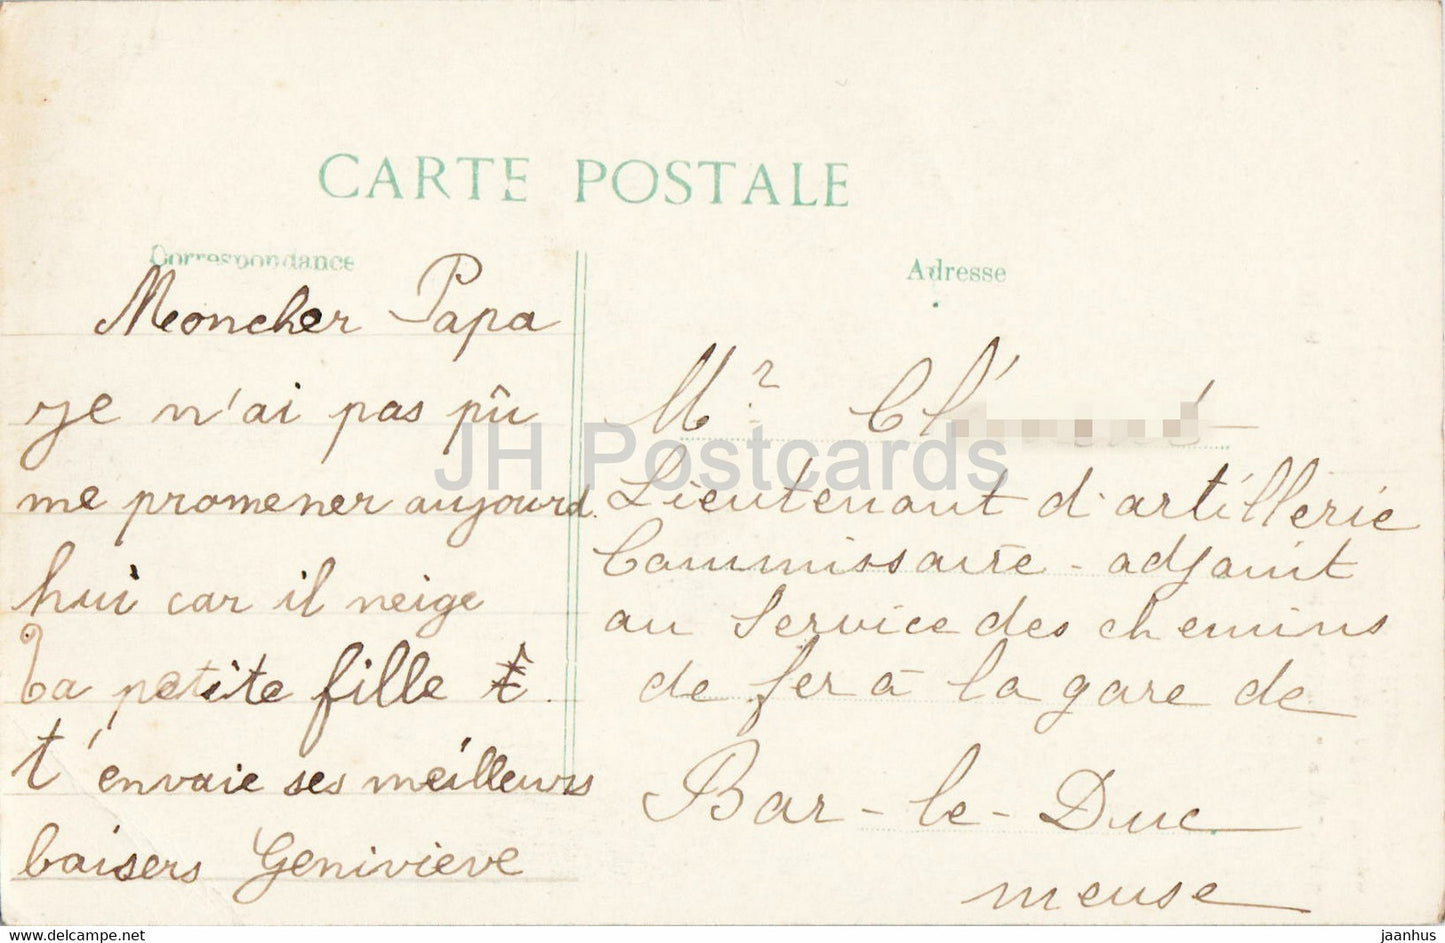 CARTE POSTALE
Correspondance
Moncher Papa
je n'ai pas pû
me promener aujourd.
hui car il neige
Ta petite fille t
t'envoie ses meilleurs
baisers Geniviève
Adresse
Mr
Lieutenant d'artillerie
Commissaire-adjoint
au Service des chemins
de fer à la gare de
Bar-le-Duc
meuse
JH Postcards
www.delcampe.net
jaanhus